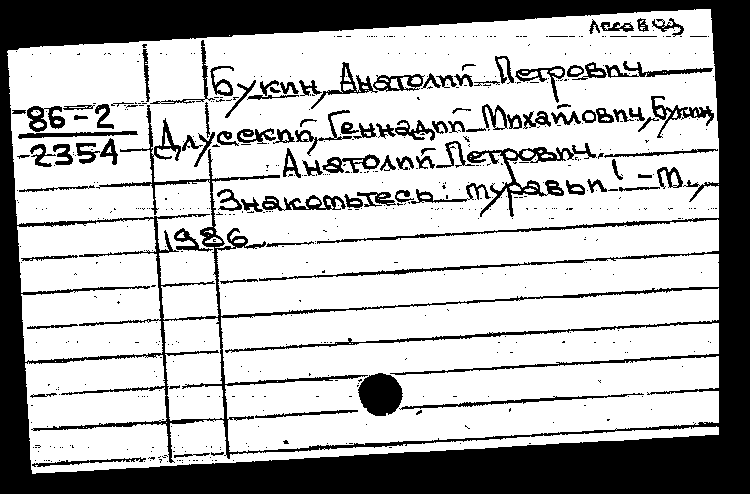 Букин, Анатолий Петрович
86-2
2354
Длусский, Геннадий Михайлович, Букин,
Анатолий Петрович
Знакомьтесь: муравьи! - М.,
1986